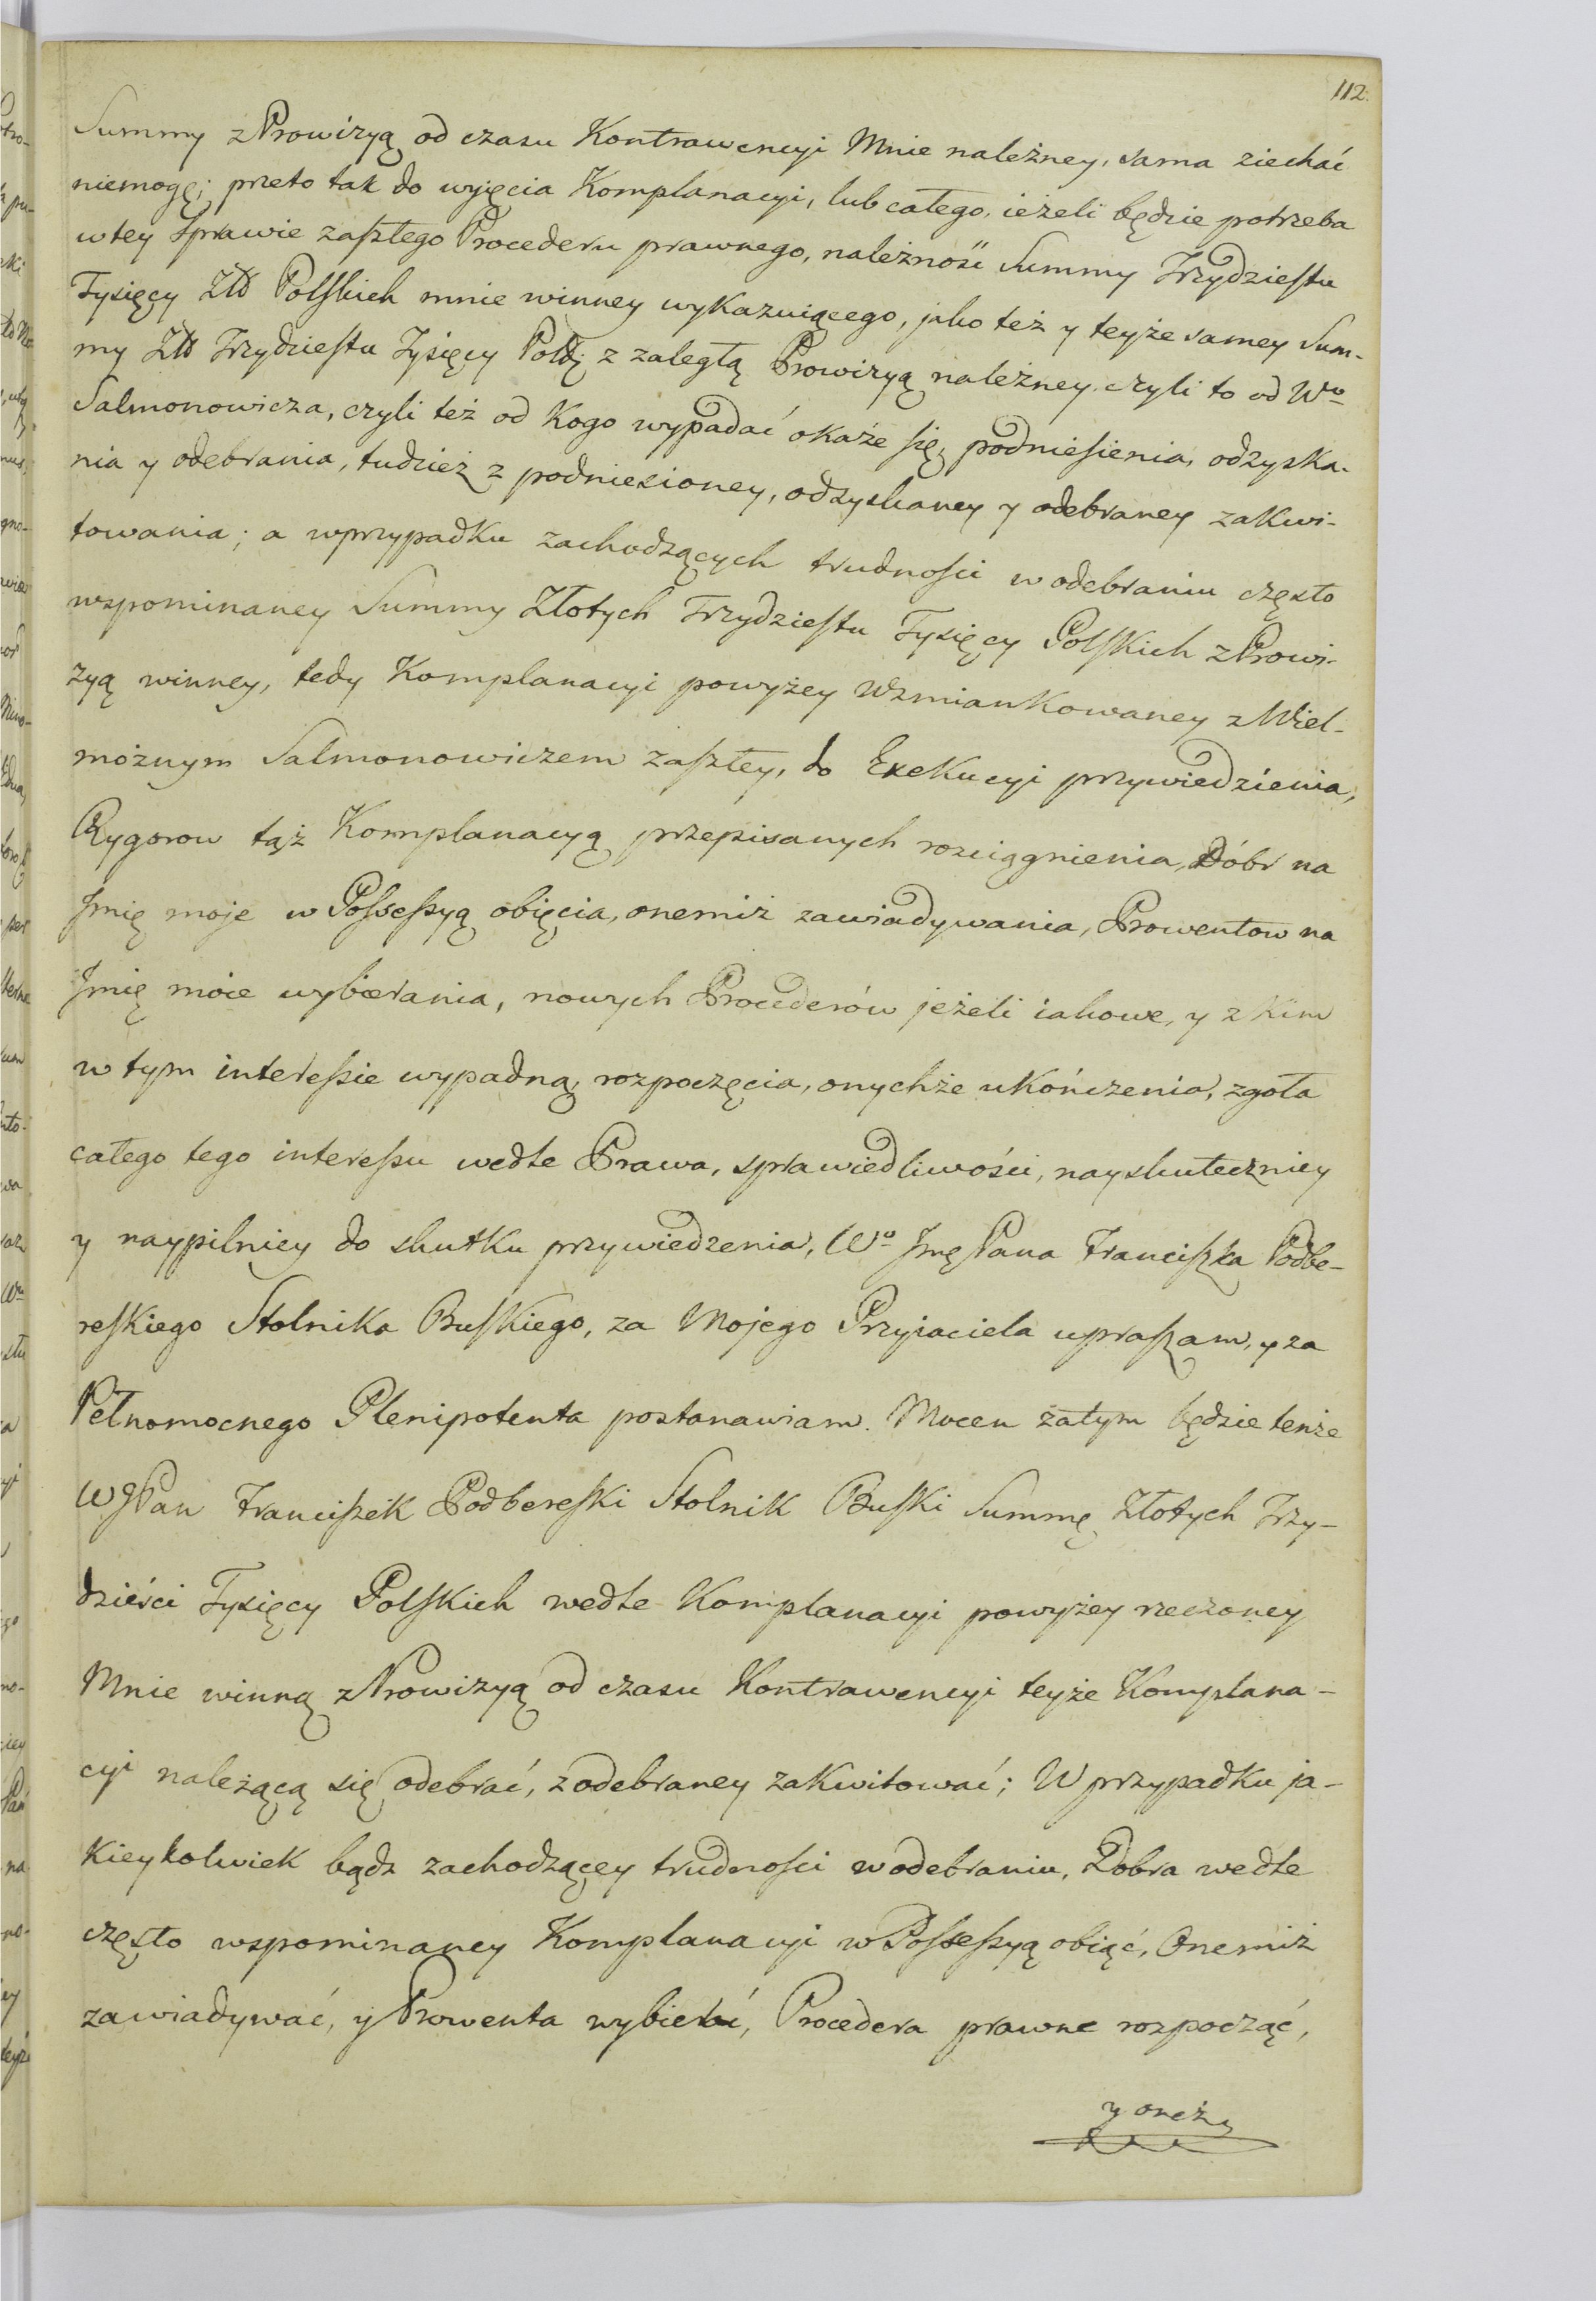 112.
Summy z Prowizyą od czasu Kontrawencyi Mnie należney, sama ziechać
niemogę; przeto tak do wyięcia Komplanacyi, lub całego, ieżeli będzie potrzeba
w tey Sprawie zaszłego Procederu prawnego, należność Summy Trzydziestu
Tysięcy Złł Polskich mnie winney wykazuiącego, jako też y teyże samey Sum-
my Złł Trzydziestu Tysięcy Polsk: z zaległą Prowizyą należney, czyli to od Wo
Salmonowicza, czyli też od Kogo wypadać okaże się, podniesienia, odzyska-
nia y odebrania, tudzież z podniesioney, odzyskaney y odebraney zakwi-
towania; a wprzypadku zachodzących trudności w odebraniu często
wspominaney Summy Złotych Trzydziestu Tysięcy Polskich z Prowi-
zyą winney, tedy Komplanacyi powyżey wzmiankowaney z Wiel-
możnym Salmonowiczem zaszłey, do Exekucyi przywiedzienia,
Rygorow tąż Komplanacyą przepisanych rozciągnienia, Dóbr na
Imię moje w Possessyą obięcia, onemiż zawiadywania, Prowentow na
Imię moie wybierania, nowych Procederów jeżeli iakowe, y z kim
w tym interessie wypadną, rozpoczęcia, onychże ukończenia, zgoła
całego tego interessu wedle Prawa, sprawiedliwości, nayskuteczniey
y naypilniey do skutku przywiedzenia, Wo Jmę Pana Franciszka Podbe-
reskiego Stolnika Buskiego, za Mojego Przyiaciela upraszam, y za
Pełnomocnego Plenipotenta postanawiam. Mocen zatym będzie tenże
WJPan Franciszek Podbereski Stolnik Buski Summę Złotych Trzy-
dzieści Tysięcy Polskich wedle Komplanacyi powyżey rzeczoney
Mnie winną z Prowizyą od czasu Kontrawencyi teyże Komplana-
cyi należącą się odebrać, z odebraney zakwitować; W przypadku ja-
kieykolwiek bądz zachodzącey trudności w odebraniu, Dobra wedle
często wspominaney Komplanacyi w Possessyą obiąć, Onemiż
zawiadywać, y Prowenta wybierać, Procedera prawne rozpocząć,
y oneż